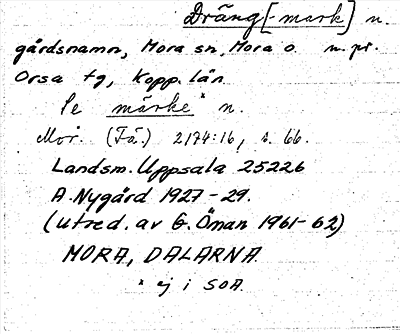 Dräng[-mark] n.
gårdsnamn, Mora sn, Mora o. n. pr.
Orsa tg, Kopp. län
Se märke* n.
Mor. (Fä.) 2174:16, s. 66.
Landsm. Uppsala 25226
A. Nygård 1927-29.
(utred. av G. Öman 1961-62)
MORA, DALARNA.
* ej i SOA.